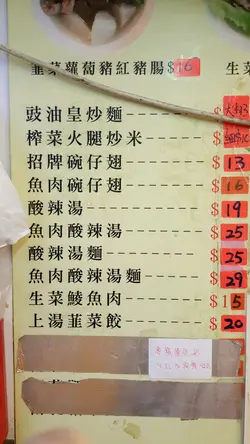 韮菜蘿蔔豬紅豬腸$16
生菜
豉油皇炒麵----------$
榨菜火腿炒米--------$
招牌碗仔翅----------$13
魚肉碗仔翅----------$16
酸辣湯--------------$19
魚肉酸辣湯----------$25
酸辣湯麵------------$25
魚肉酸辣湯麵--------$29
生菜鯪魚肉----------$15
上湯韮菜餃----------$20